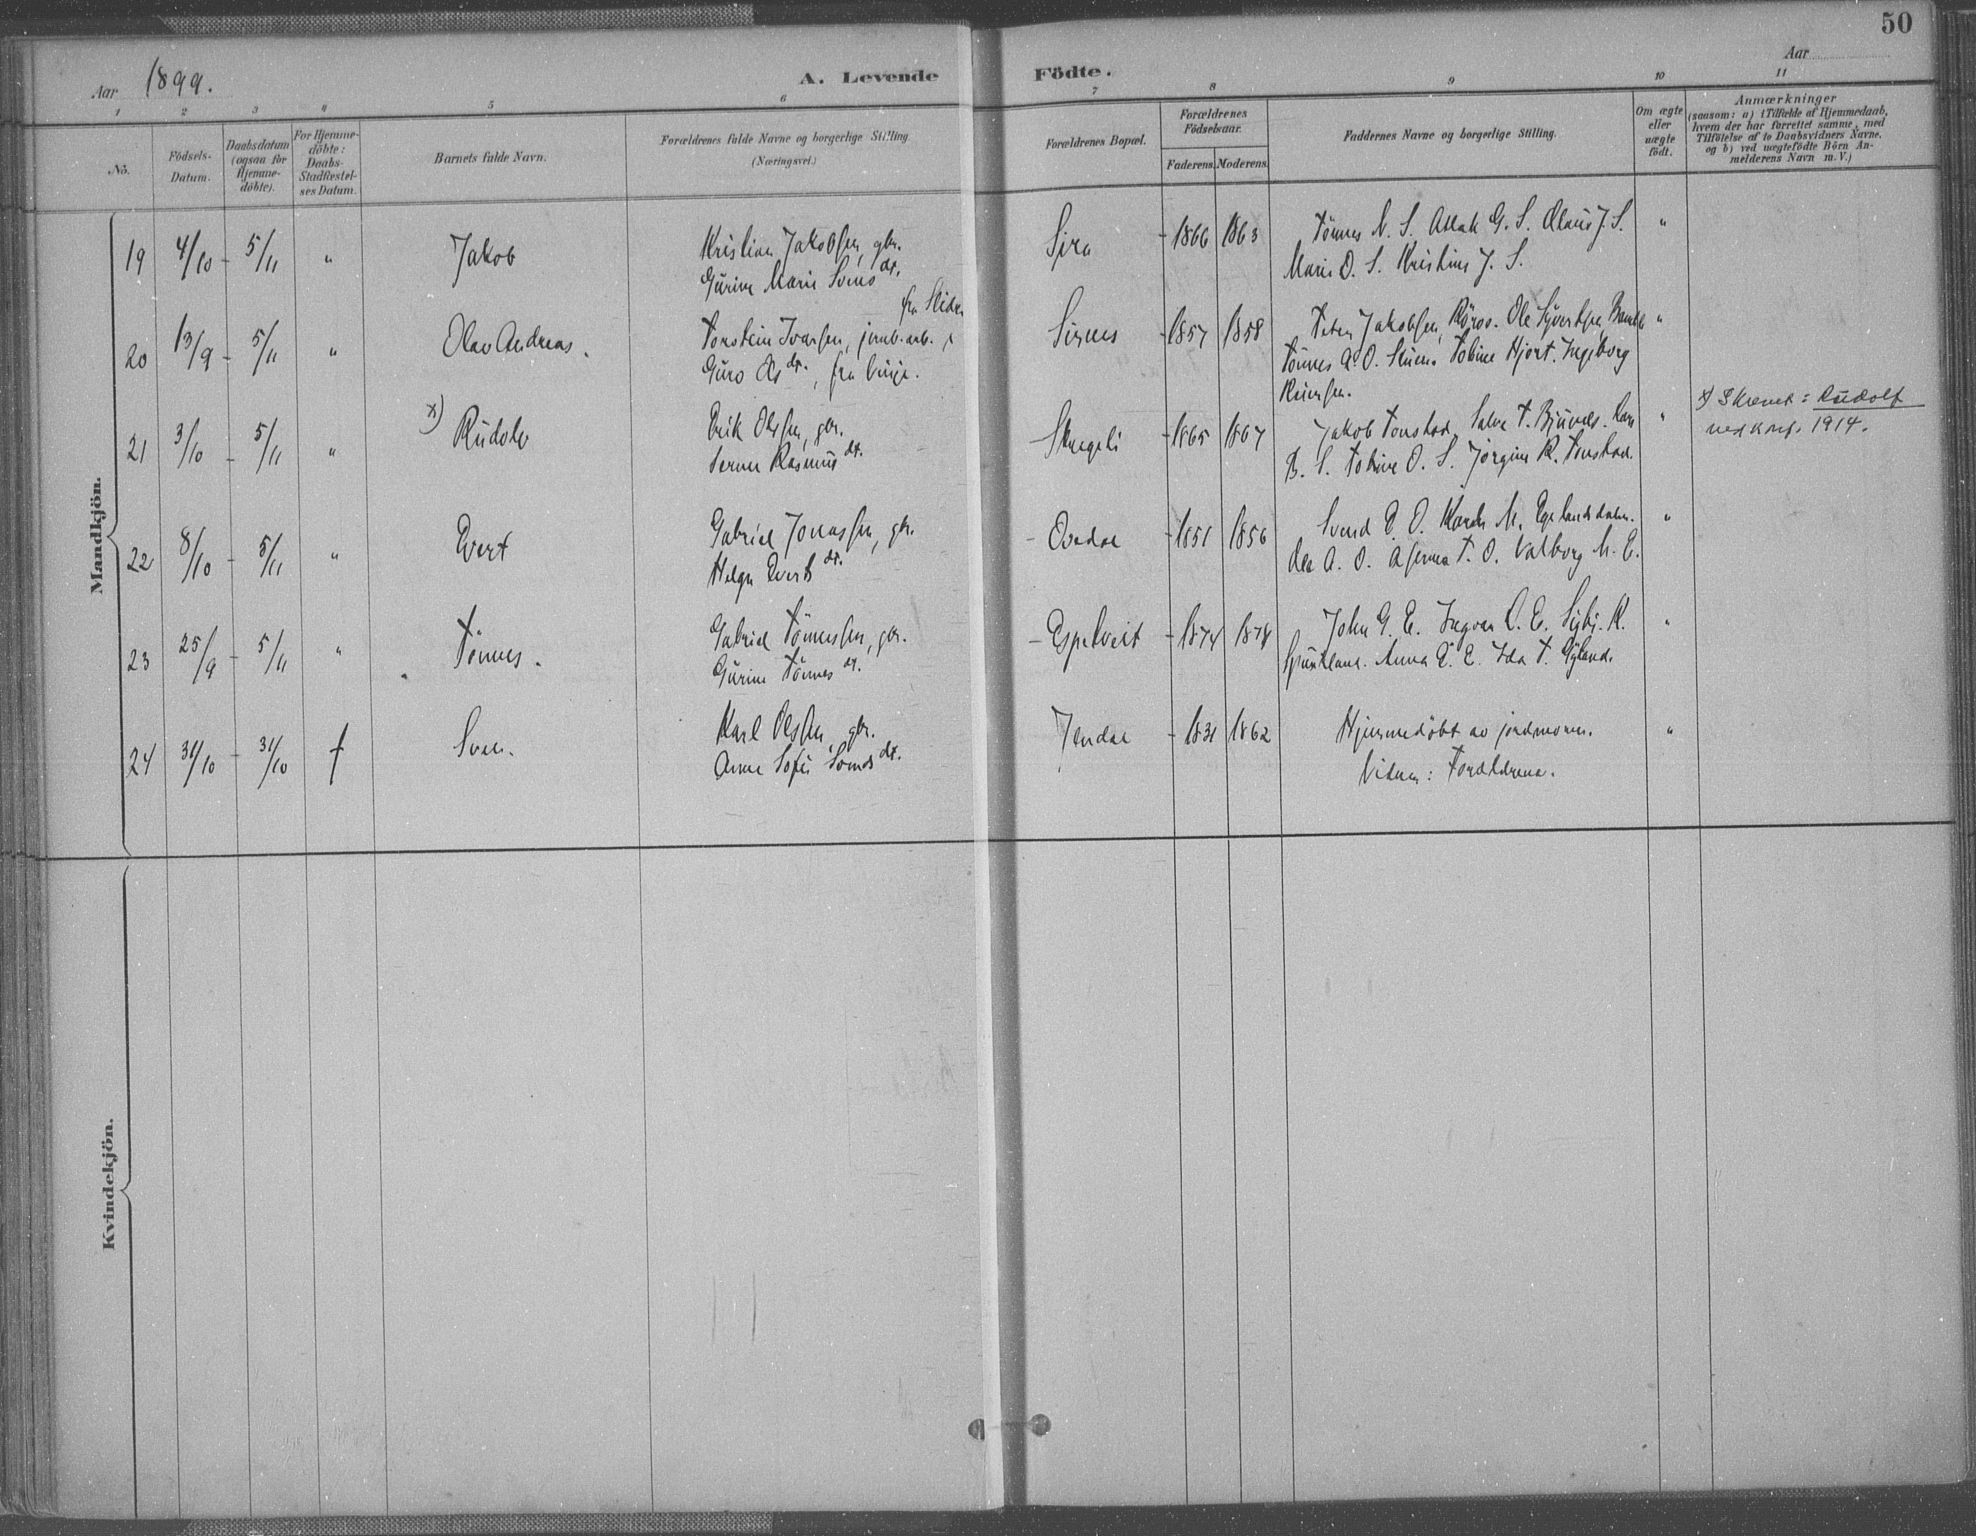 50
Aar 1899.
A. Levende Födte.
Aar
1 2 3 4 5 6 7 8 9 10 11
No.
Födsels-Datum.
Daabsdatum (ogsaa for Hjemmedöbte).
For Hjemmedöbte: Daabs-Stadfæstelses Datum.
Barnets fulde Navn.
Forældrenes fulde Navne og borgerlige Stilling.
(Næringsvei.)
Forældrenes Bopæl.
Forældrenes Födselsaar.
Faderens. Moderens.
Faddernes Navne og borgerlige Stilling.
Om ægte eller uægte födt.
Anmærkninger
(saasom: a) i Tilfælde af Hjemmedaab, hvem der har forrettet samme, med Tilföielse af to Daabsvidners Navne, og b) ved uægtefödte Börn Anmelderens Navn m. V.)
Mandkjön.
19 4/10 - 5/11 " Jakob Kristian Jakobsen, gbr. Sira - 1866 1863 Tönnes N. S. Aslak G. S. Olaus J. S. "
Gurine Marie Svens dt. Marie O. S. Kristine J. S.
fra Skien
20 13/9 - 5/11 " Olav Andreas. Torstein Ivarsen, jernb.arb. Sirnes - 1857 1858 Peter Jakobsen, Röros. Ole Syvertsen, "
Guro Ols dt., fra Vinje. Tönnes A. O. Tobine Hjort. Ingeborg
21 3/10 - 5/11 " x) Rudolv Erik Olsen, gbr. - 1865 1867 Jakob Tonstad, Salve T. " x) Skrevet: Rudolf
Rasmus dt. B. S. Tobine O. S. Jörgine R. Tonstad. ved konf. 1914.
22 8/10 - 5/11 " Evert Gabriel Jonassen, gbr. - Ovedal - 1851 1856 Svend E. O. M. Egelandsdalen. "
Helga Everts dt. A. O. T. O. Valborg M. E.
23 25/9 - 5/11 " Tönnes. Gabriel Tönnessen, gbr. - Espetveit - 1874 1878 John G. E. Ingvar O. E. R. "
Gurine Tönnes dt. Anna E. E. Ida T. Gyland.
24 31/10 - 31/10 † Sven. Karl Olsen, gbr. Jerdal - 1831 1862 Hjemmedöbt av jordmoren. "
Anne Sofie Svends dt. Vidner: Forældrene.
Kvindekjön.